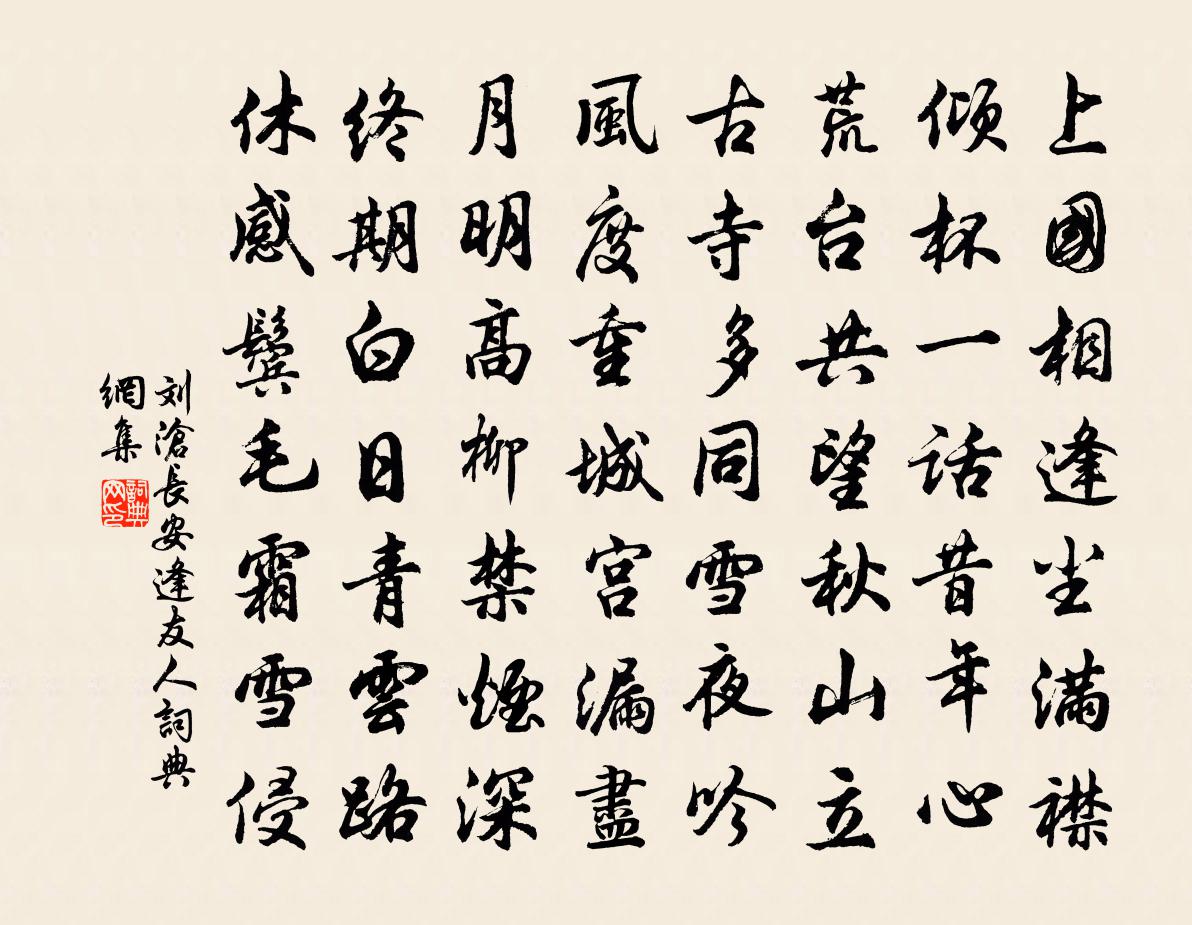 上國相逢尘满襟
倾杯一话昔年心
荒台共望秋山立
古寺多同雪夜吟
風度重城宫漏盡
月明高柳禁煙深
终期白日青雲路
休感鬓毛霜雪侵
刘滄長安逢友人詞典
網集
詞典
网印